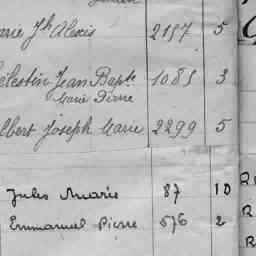 arie Jh Alexis 2157 5
élestin Jean Bapte 1085 3
Marie Pierre
lbert Joseph Marie 2299 5
Jules Marie 87 10
Emmanuel Pierre 576 2